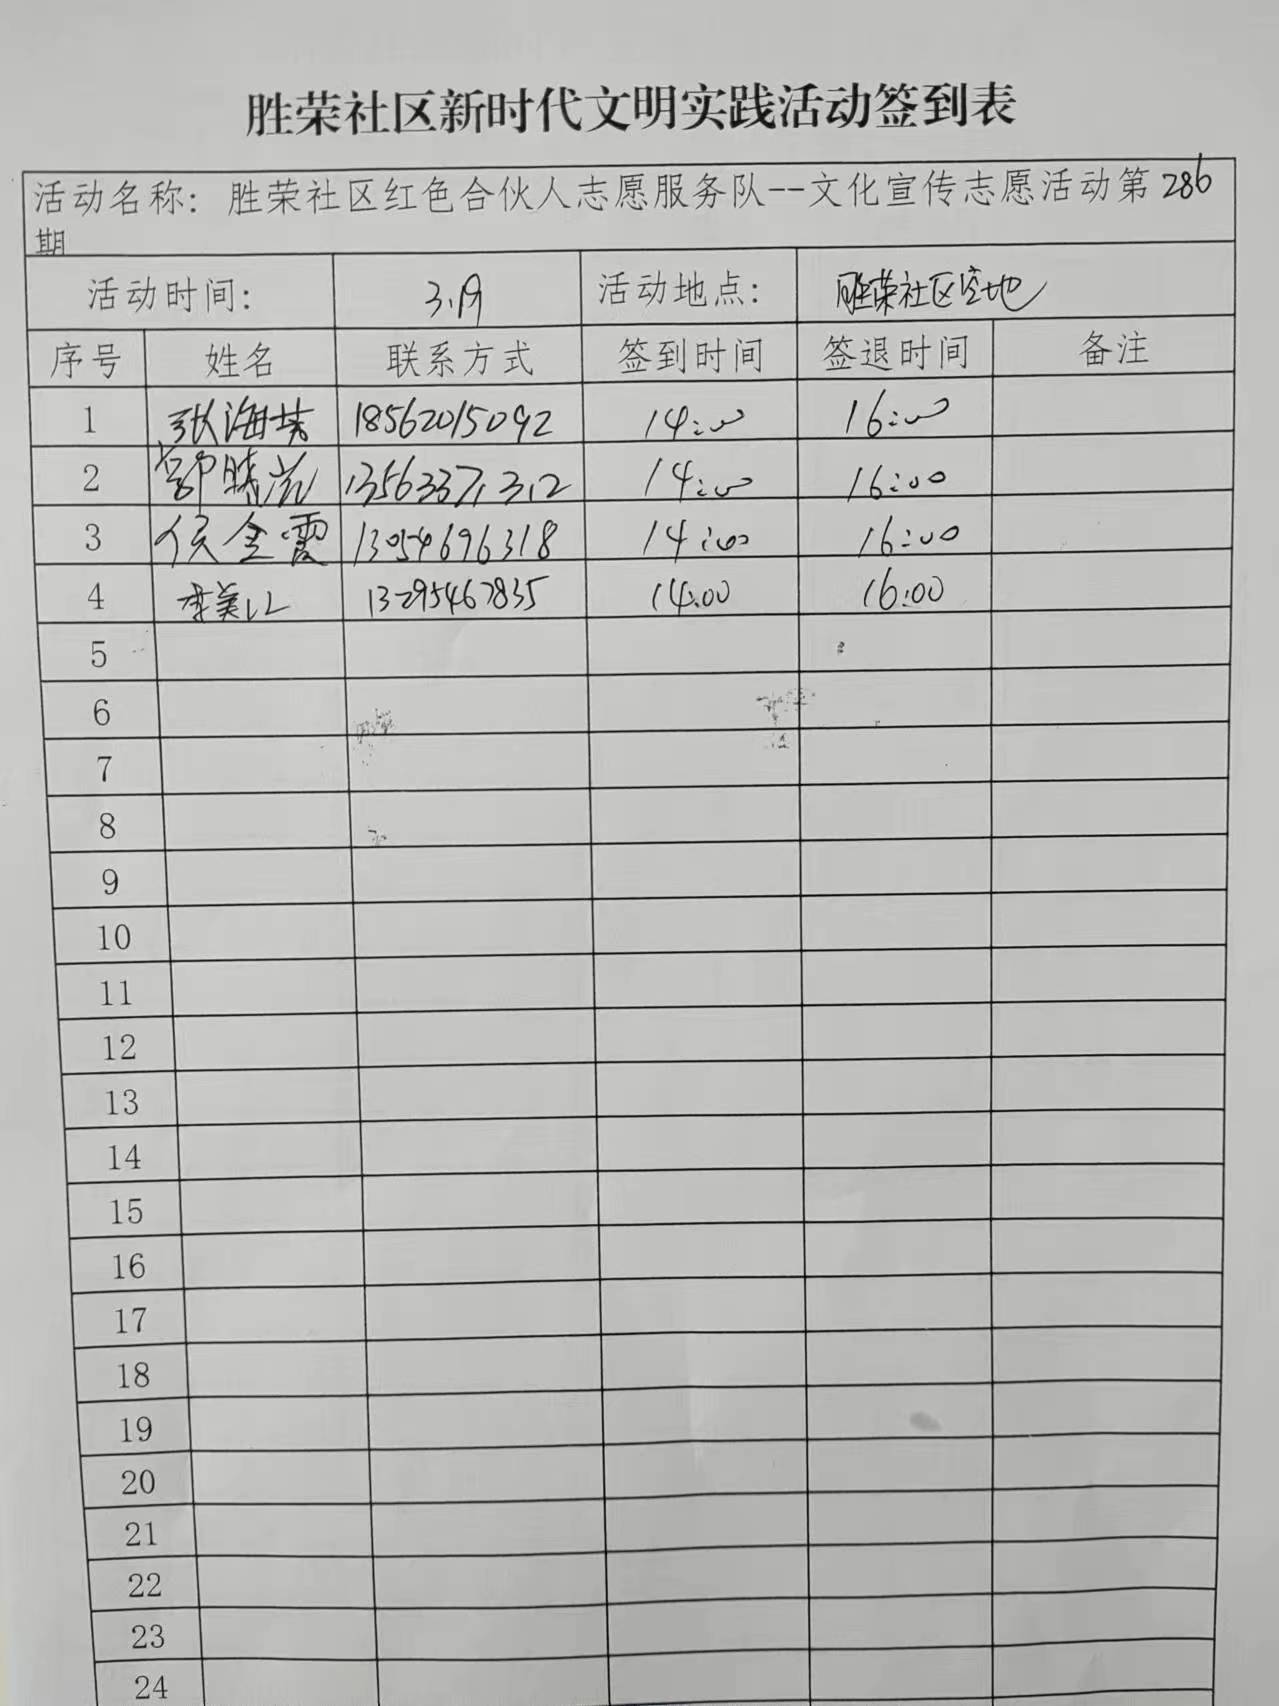 胜荣社区新时代文明实践活动签到表
活动名称：胜荣社区红色合伙人志愿服务队--文化宣传志愿活动第286
期
活动时间： 活动地点： 胜荣社区空地
序号 姓名 联系方式 签到时间 签退时间 备注
1 张海 18562015092 14:00 16:00
2 郭晓 14:00 16:00
3 侯金霞 13054696318 14:00 16:00
4 李美 13295467835 14:00 16:00
5
6
7
8
9
10
11
12
13
14
15
16
17
18
19
20
21
22
23
24